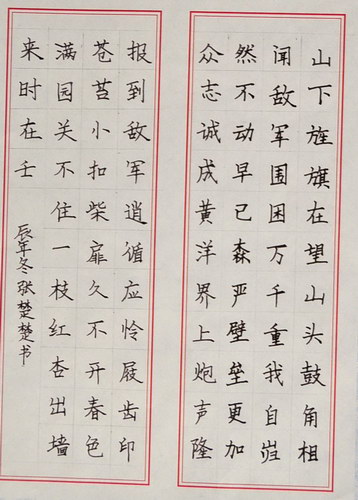 山下旌旗在望山头鼓角相
闻敌军围困万千重我自岿
然不动早已森严壁垒更加
众志诚成黄洋界上炮声隆
报到敌军逍循应怜屐齿印
苍苔小扣柴扉久不开春色
满园关不住一枝红杏出墙
来时在壬
辰年冬张楚楚书